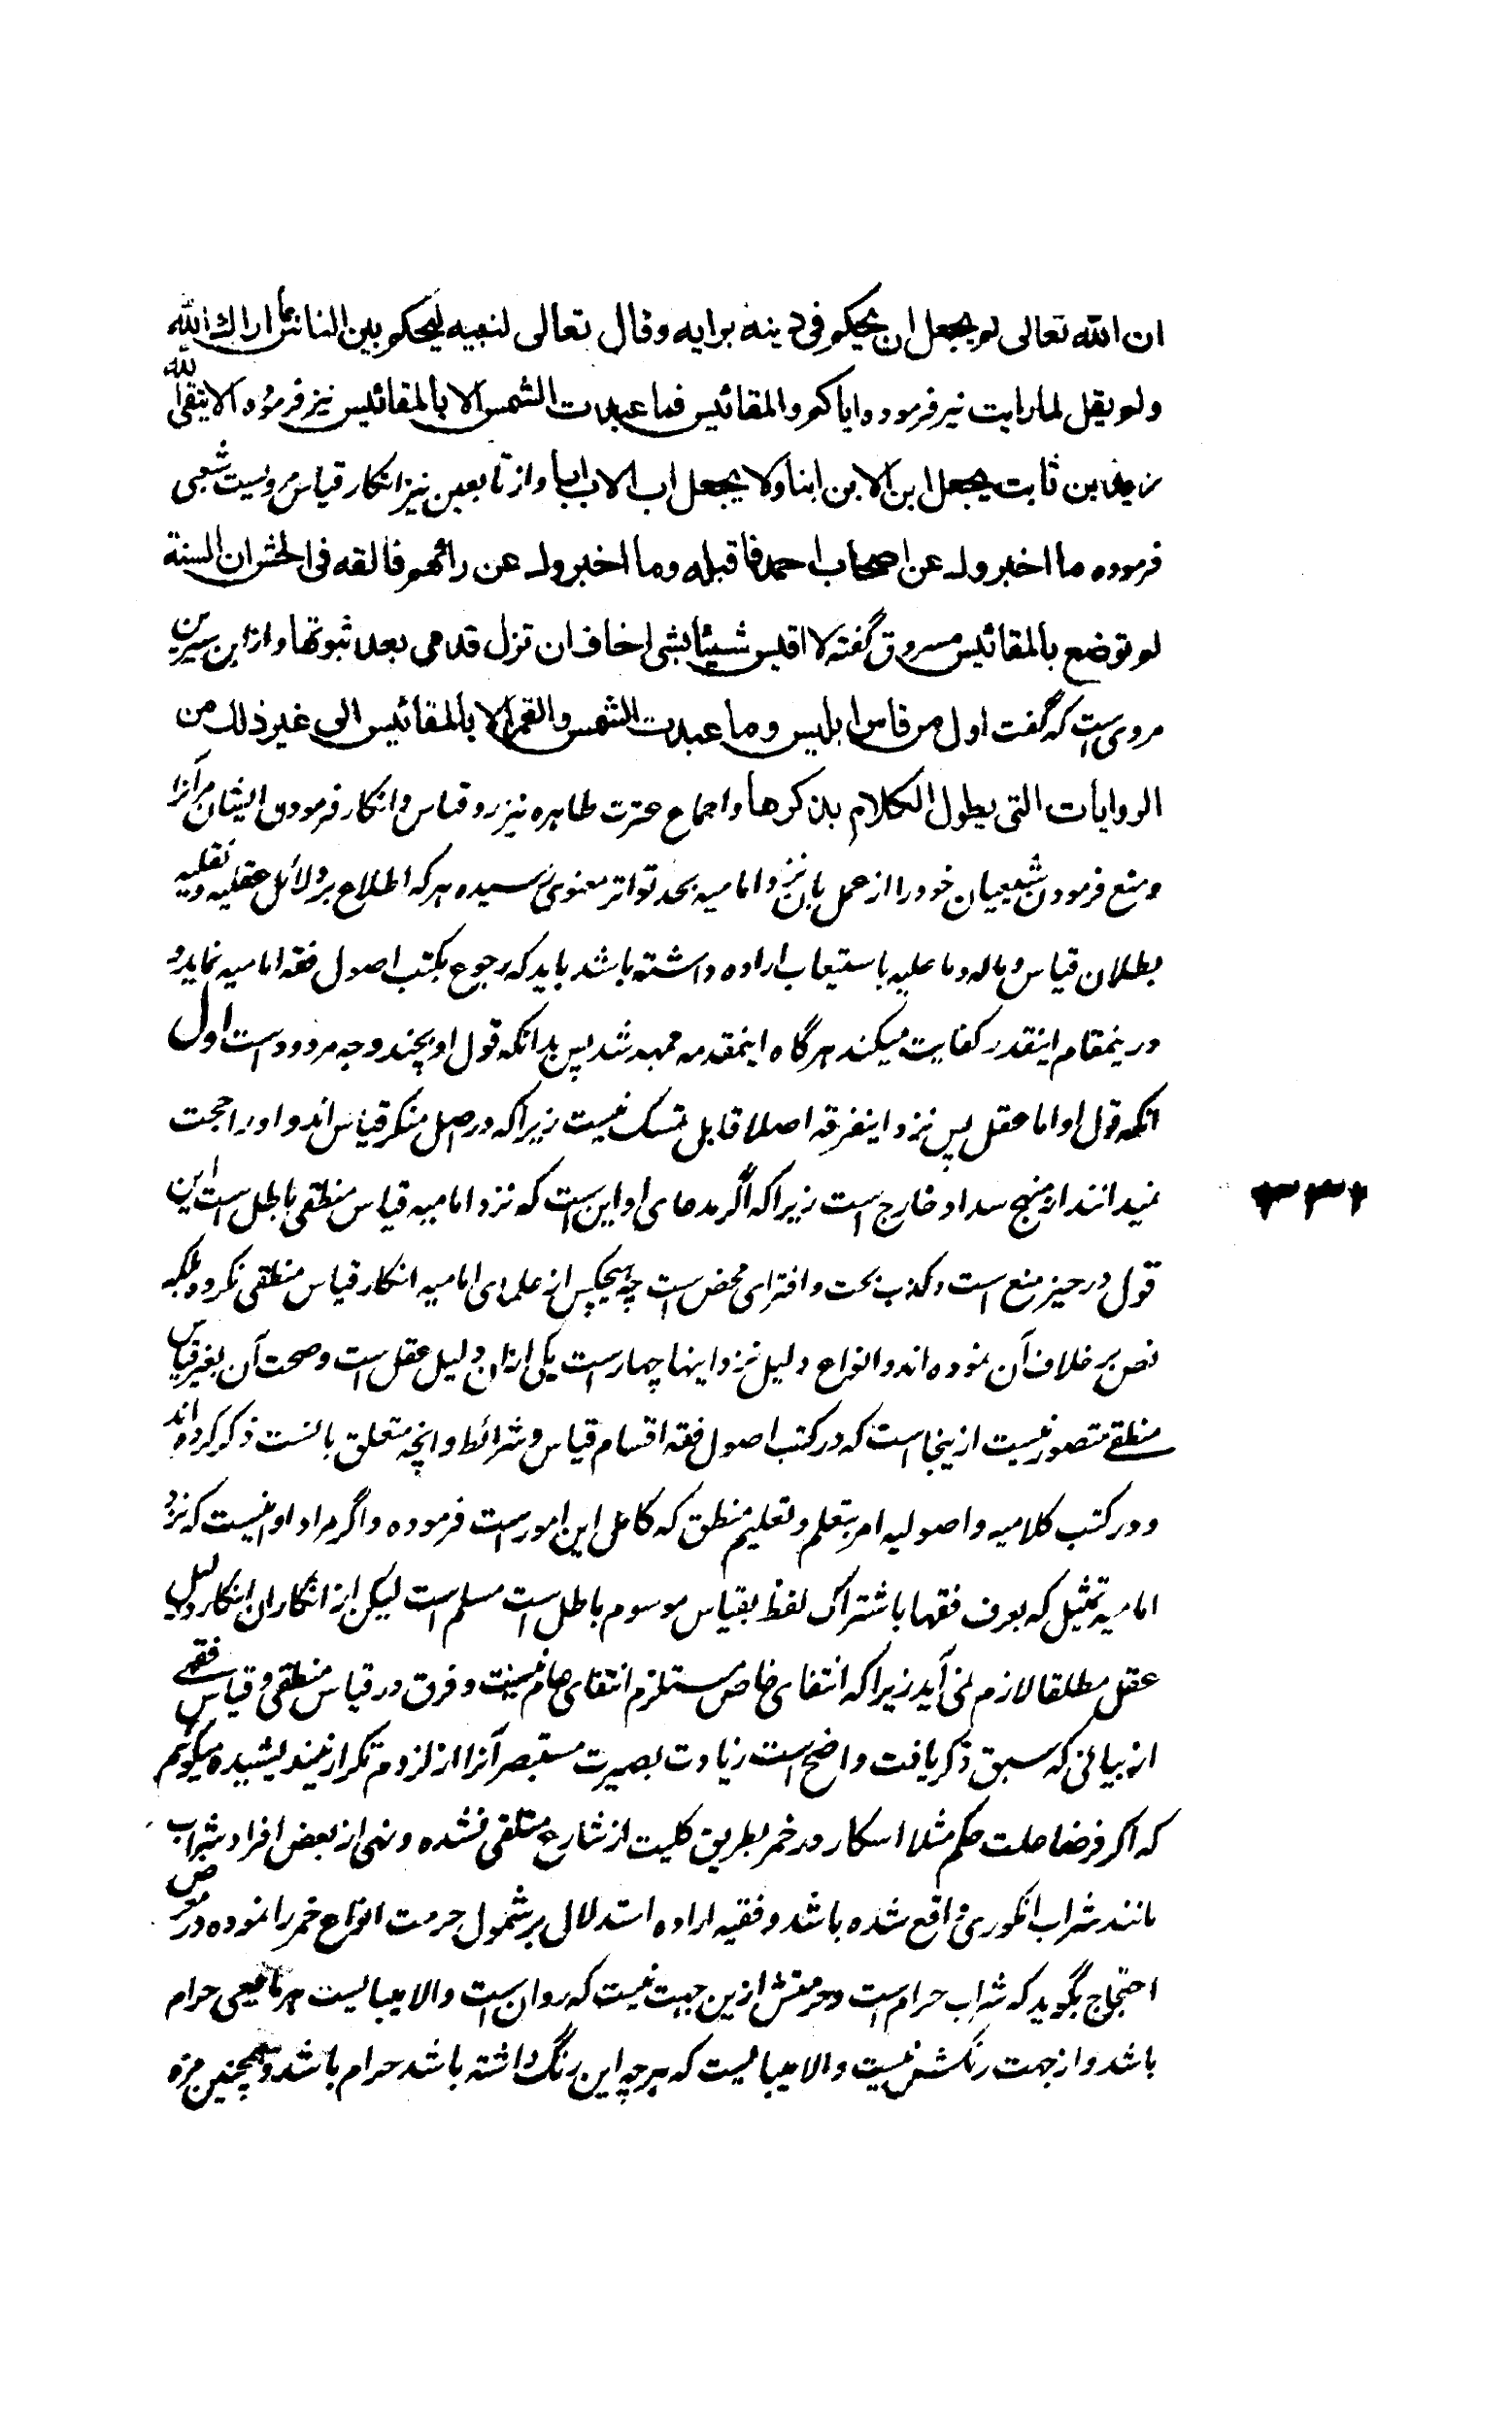 ان الله تعالی لم یجعل ان یحکم فی دینه برایه وقال تعالی لنبیه لیحکم بین الناس بما اراك الله
ولم یقل لما رایت نیز فرموده ایاکم والمقائیس فما عبدت الشمس الا بالمقائیس نیز فرموده الا یتقی الله
زید بن ثابت یجعل ابن الابن ابنا ولا یجعل اب الاب ابا واز تابعین نیز انکار قیاس مرویست شعبی
فرموده ما اخبروك عن اصحاب احمد فاقبله وما اخبروك عن رائهم فالقه فی الحش ان السنة
لم توضع بالمقائیس مسروق گفته لا اقیس شیئا بشی اخاف ان تزل قدمی بعد ثبوتها واز ابن سیرین
مروی است که گفت اول من قاس ابلیس وما عبدت الشمس والقمر الا بالمقائیس الی غیر ذلك من
الروایات التی یطول الکلام بذکرها واجماع عترت طاهره نیز رد قیاس وانکار فرمودن ایشان مر آنرا
ومنع فرمودن شیعیان خود را از عمل بان نزد امامیه بحد تواتر معنوی رسیده هر که اطلاع بر دلائل عقلیه ونقلیه
بطلان قیاس وماله وما علیه باستیعاب اراده داشته باشد باید که رجوع بکتب اصول فقه امامیه نماید و
درینمقام اینقدر کفایت میکند هر گاه اینمقدمه ممهد شد پس بدانکه قول او بچند وجه مردود است اول
انکه قول او اما عقل پس نزد اینفرقه اصلا قابل تمسک نیست زیرا که در اصل منکر قیاس اند و او را حجت
نمیدانند از منهج سداد خارج است زیرا که اگر مدعای او این است که نزد امامیه قیاس منطقی باطل است این
قول در حیز منع است وکذب بحت وافترای محض است چه هیچکس از علمای امامیه انکار قیاس منطقی نکرده بلکه
نص بر خلاف آن نموده اند وانواع دلیل نزد اینها چهارست یکی ازان دلیل عقل است وصحت آن بغیر قیاس
منطقی متصور نیست از ینجا است که در کتب اصول فقه اقسام قیاس وشرائط وانچه متعلق بانست ذکر کرده اند
ودر کتب کلامیه واصولیه امر بتعلم وتعلیم منطق که کامل این امورست فرموده واگر مراد او اینست که نزد
امامیه تمثیل که بعرف فقها باشتراک لفظ بقیاس موسوم باطل است مسلم است لیکن از انکار ان انکار دلیل
عقل مطلقا لازم نمی آید زیرا که انتفای خاص مستلزم انتفای عام نیست وفرق در قیاس منطقی وقیاس فقهی
از بیانی که سبق ذکر یافت واضح است زیادت بصیرت مستبصر آنرا از لزوم تکرار نیندیشیده میگوئیم
که اگر فرضا علت حکم مثلا اسکار در خمر بطریق کلیت از شارع متلقی نشده ونهی از بعض افراد شراب
مانند شراب انگوری واقع شده باشد وفقیه اراده استدلال بر شمول حرمت انواع خمر را نموده در معرض
احتجاج بگوید که شراب حرام است وحرمتش ازین جهت نیست که روان است والا میبایست هر مایعی حرام
باشد واز جهت رنگش نیست والا میبایست که هر چه این رنگ داشته باشد حرام باشد وهمچنین مزه